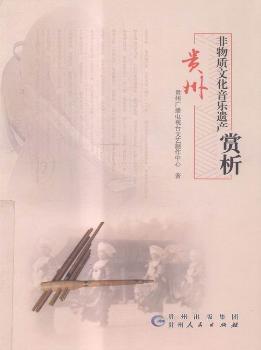 贵州
非物质文化音乐遗产
赏析
贵州广播电视台文艺制作中心 著
贵州出版集团
贵州人民出版社